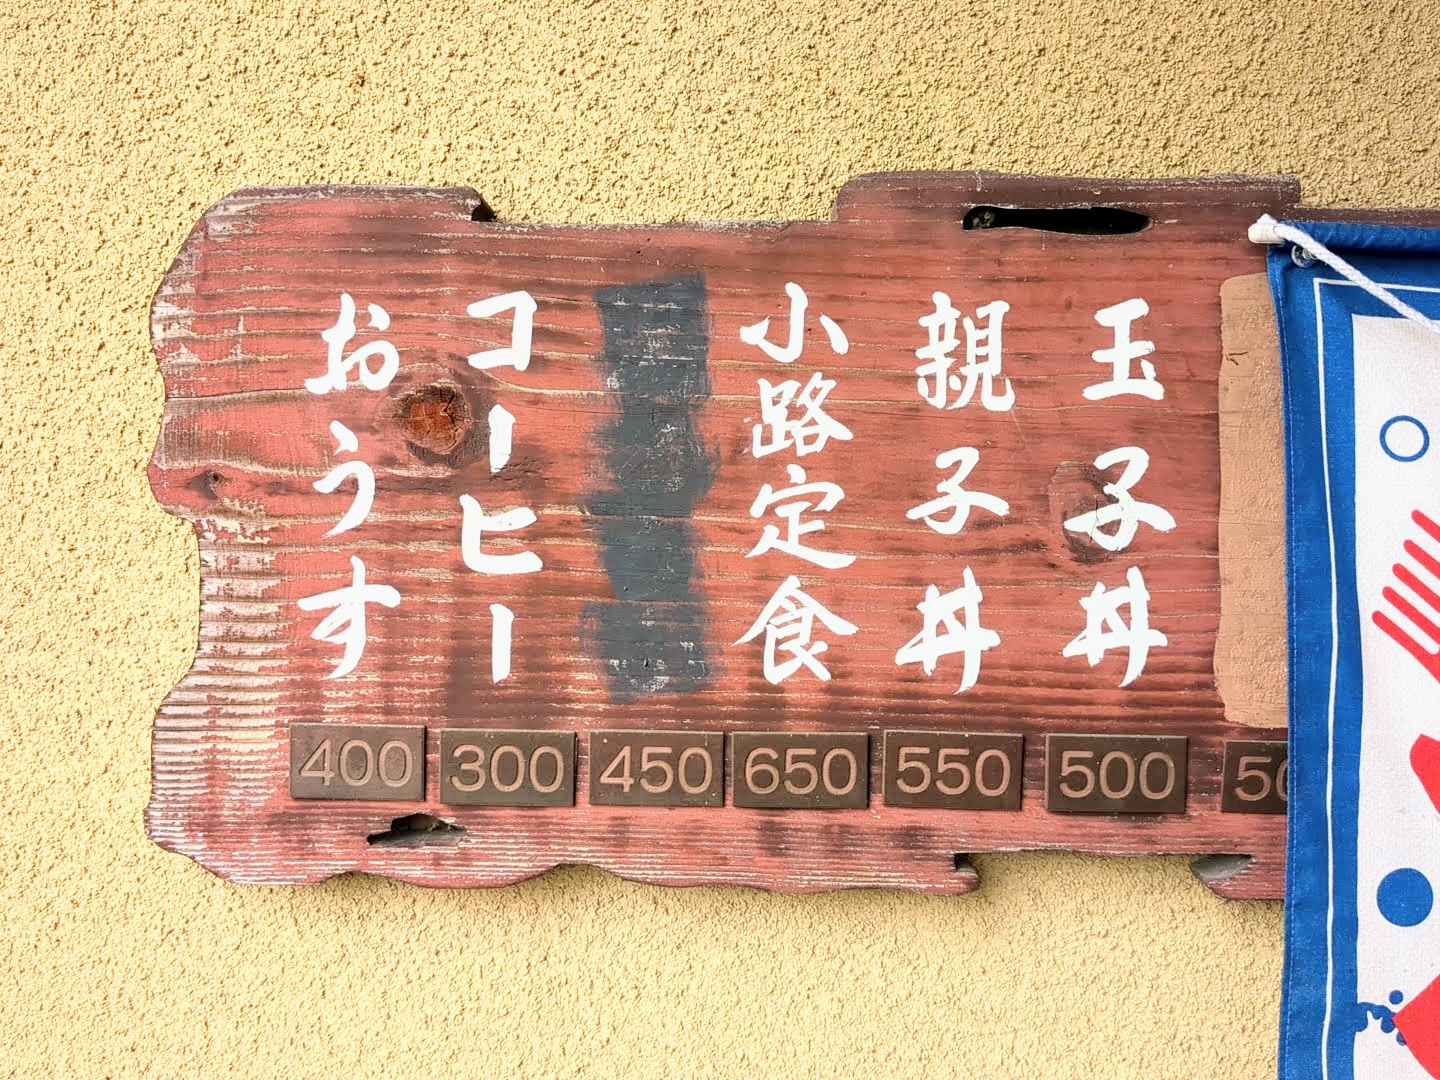 玉子丼
親子丼
小路定食
コーヒー
おうす
400 300 450 650 550 500